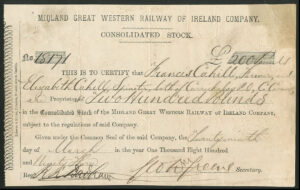 MIDLAND GREAT WESTERN RAILWAY OF IRELAND COMPANY.
CONSOLIDATED STOCK.
No 15171 £200
THIS IS TO CERTIFY that Francis Cahill,
Elizabeth Cahill, Spinster, both of
Proprietors Two Hundred Pounds
in the Consolidated Stock of the MIDLAND GREAT WESTERN RAILWAY OF IRELAND COMPANY,
subject to the regulations of said Company.
Given under the Common Seal of the said Company, the
day of March in the year One Thousand Eight Hundred
and Ninety
Secretary.